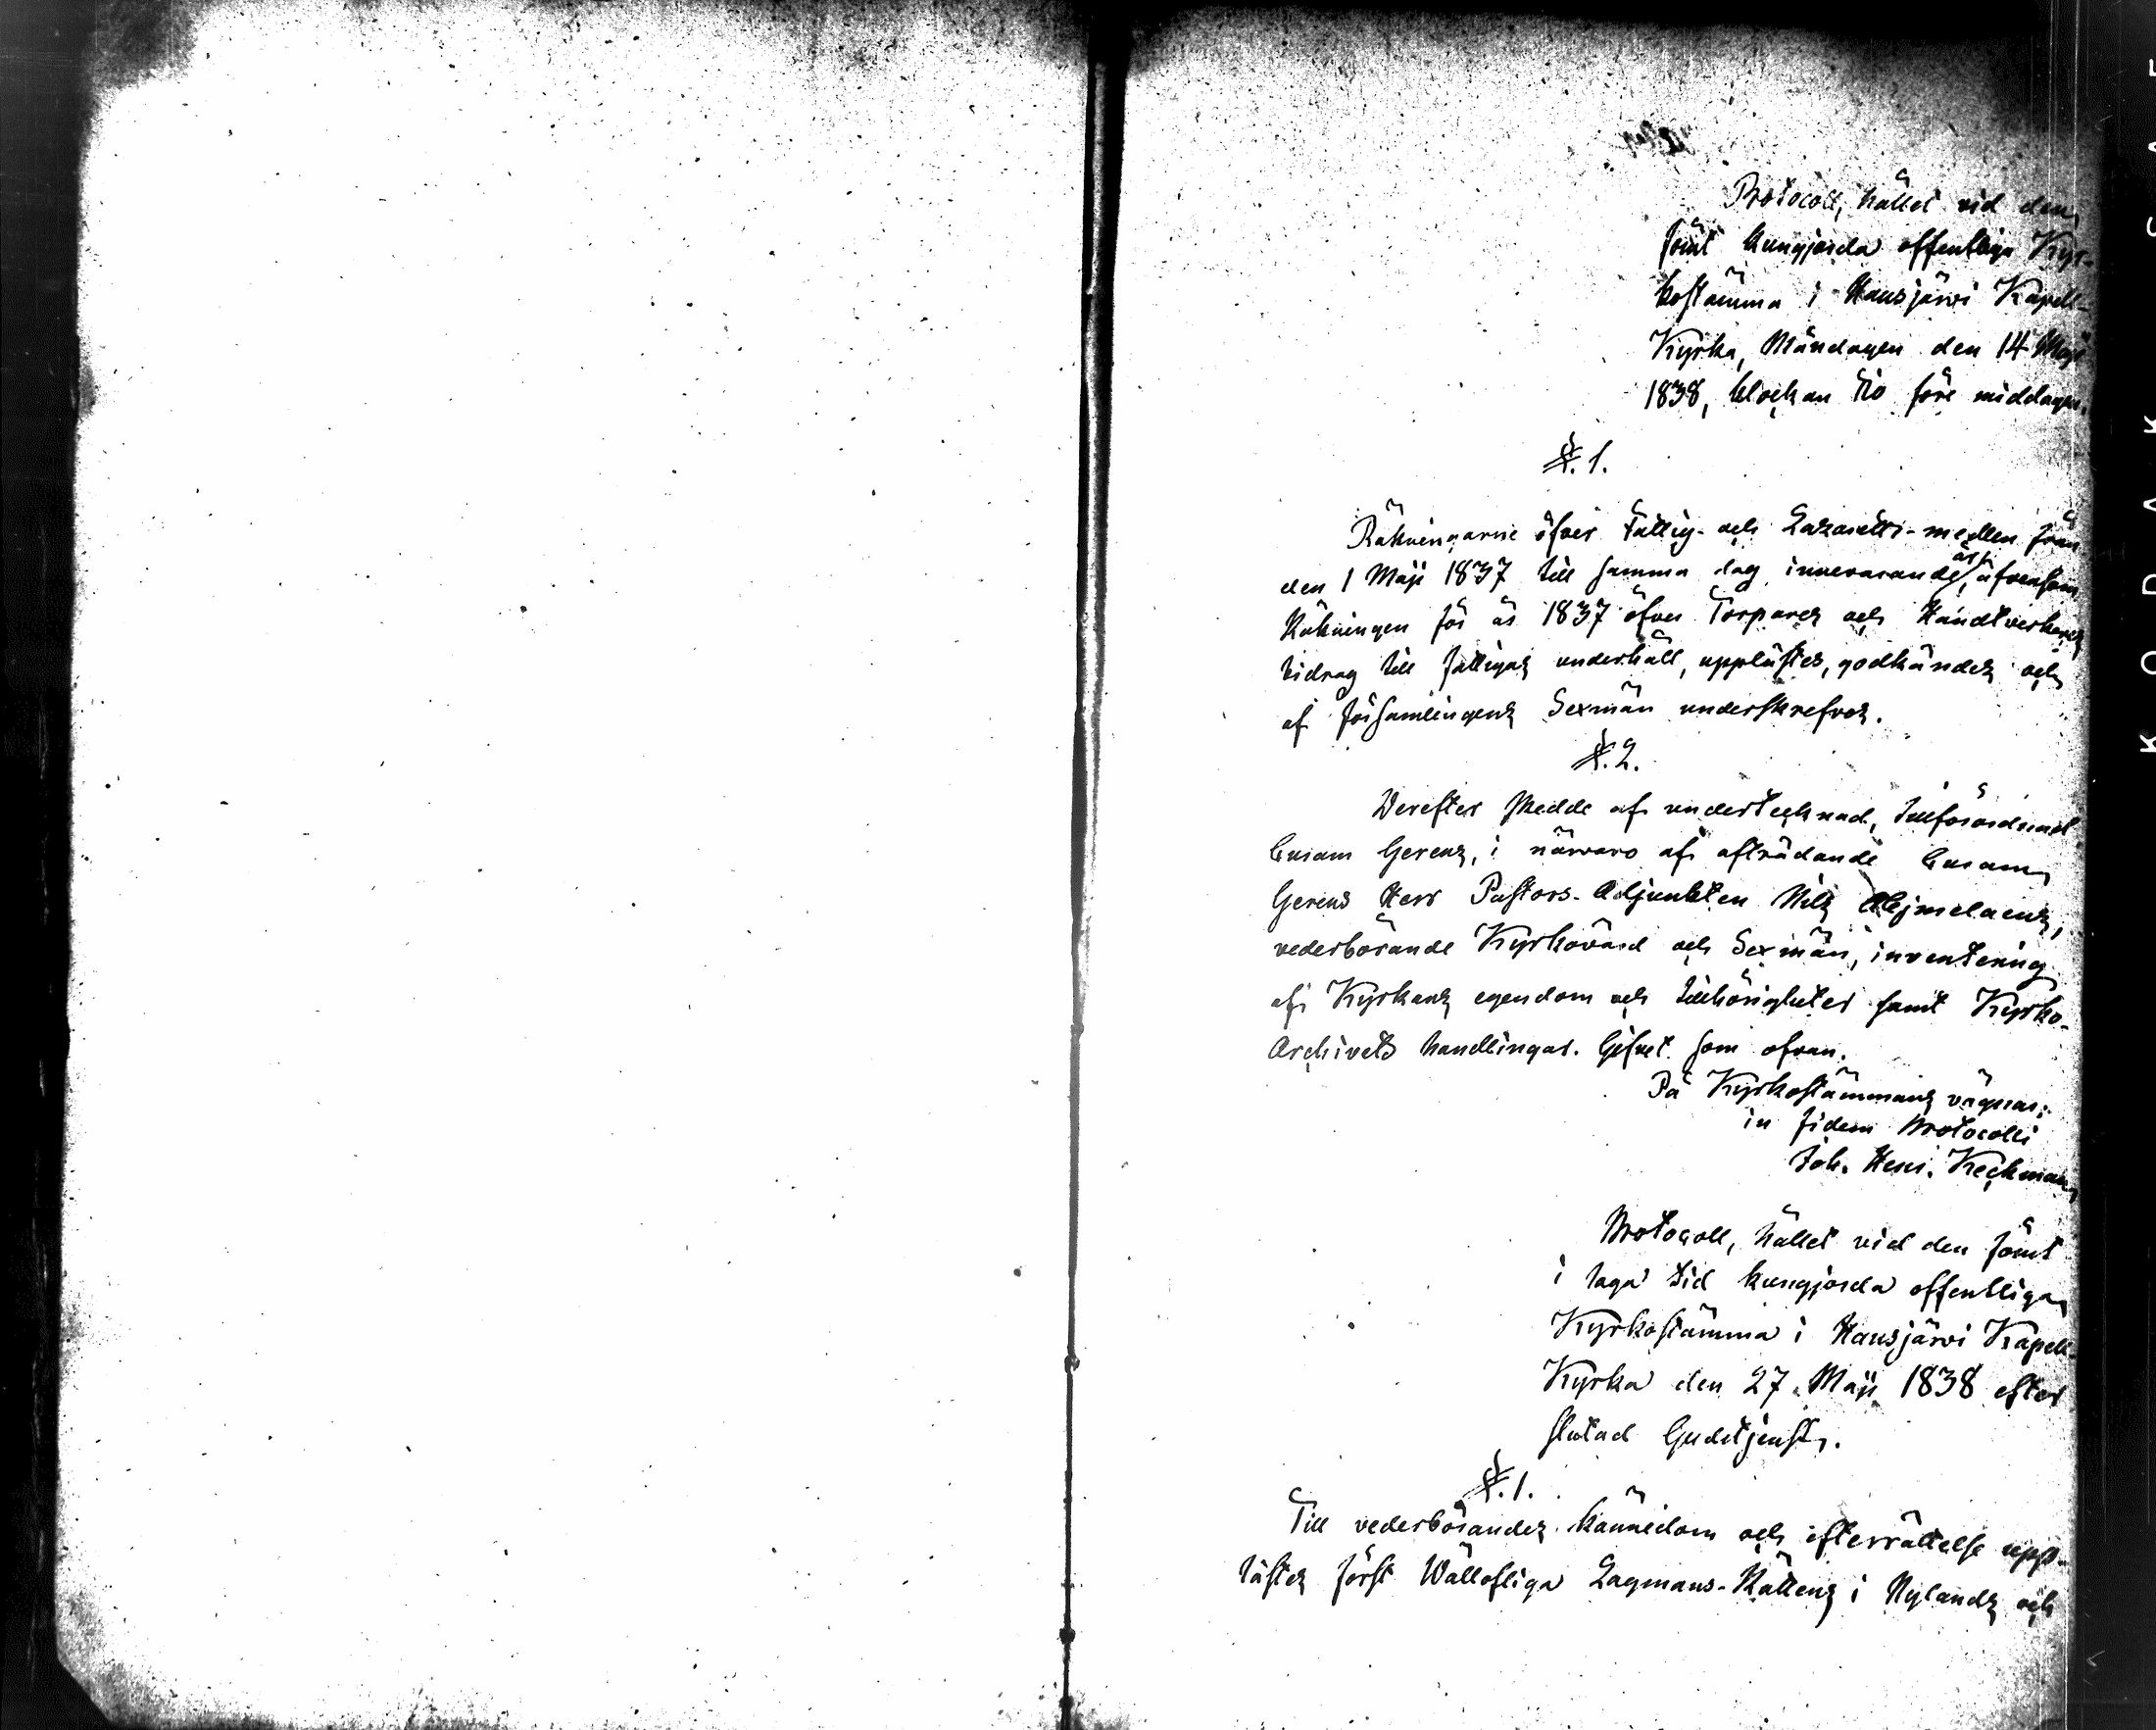 Protocoll, hållet vid den
förut kungjorda offentliga Kyr-
kostämma i Hausjärvi Kapell-
Kyrka, Måndagen den 14 Maji
1838, klockan tio före middagen.
§. 1.
Räkningarne öfver Fattig- och Lazaretts-medlen från
den 1 Maji 1837 till samma dag innevarande år, äfvensom
Räkningen för år 1837 öfver Torpares och Handtverkares
bidrag till fattigas underhåll, upplästes, godkändes och
af församlingens Sexmän underskrefvos.
§. 2.
Derefter skedde af undertecknad, tillförordnad
Curam Gerens, i närvaro af afträdande Curam
Gerens Herr Pastors-Adjunkten Nils Alejmelaeus,
vederbörande Kyrkovärd och Sexmän, inventering
af Kyrkans egendom och tillhörigheter samt Kyrko-
Archivets handlingar. Gifvet som ofvan.
På Kyrkostämmans vägnar:
in fidem Protocolli
Joh. Henr. Keckman
Protocoll, hållet vid den förut
i laga tid kungjorda offentliga
Kyrkostämma i Hausjärvi Kapell-
Kyrka den 27 Maji 1838 efter
slutad Gudstjenst.
§. 1.
Till vederbörandes kännedom och efterrättelse upp-
lästes först Wällofliga Lagmans-Rättens i Nylands och
KODAK SAF